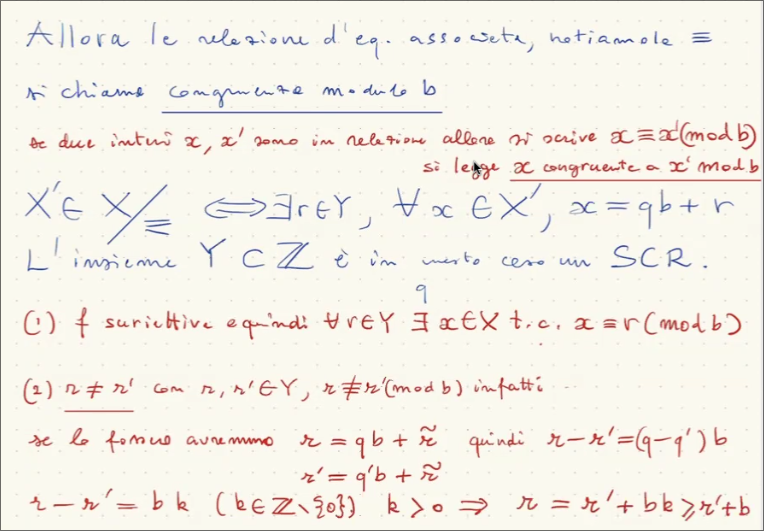 Allora la relazione d'eq. associata, notiamola ≡
si chiama congruenza modulo b
se due interi x, x' sono in relazione allora si scrive x ≡ x' (mod b)
si legge x congruente a x' mod b
X' ∈ X/≡ ⟺ ∃ r ∈ Y, ∀ x ∈ X', x = qb + r
L'insieme Y ⊂ ℤ è in questo caso un SCR.
q
(1) f suriettiva e quindi ∀ r ∈ Y ∃ x ∈ X t.c. x ≡ r (mod b)
(2) r ≠ r' con r, r' ∈ Y, r ≢ r' (mod b) infatti
se lo fossero avremmo r = qb + r̃ quindi r - r' = (q - q') b
r' = q'b + r̃
r - r' = bk (k ∈ ℤ \ {0}) k > 0 ⟹ r = r' + bk ⩾ r' + b